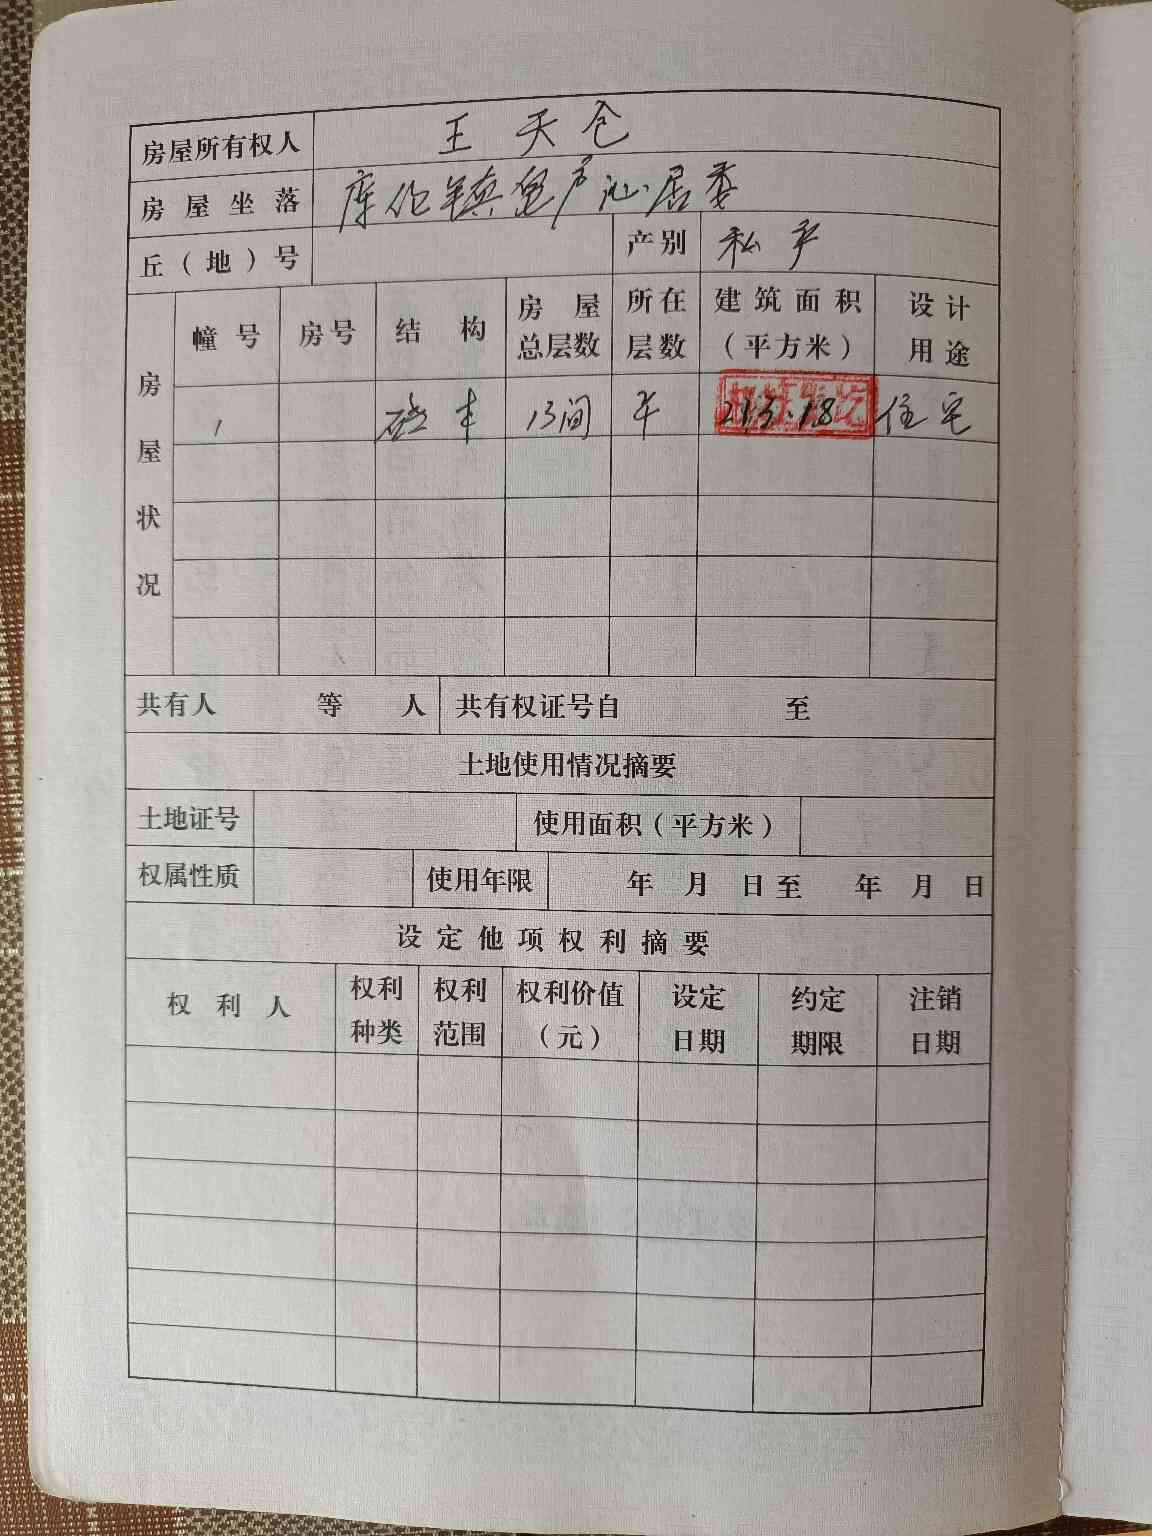 房屋所有权人 王天仓
房屋坐落 库伦镇 居委
丘（地）号 产别 私产
房屋状况 幢号 房号 结构 房屋总层数 所在层数 建筑面积（平方米） 设计用途
1 13间 平 213.18 住宅
共有人 等 人 共有权证号自 至
土地使用情况摘要
土地证号 使用面积（平方米）
权属性质 使用年限 年 月 日至 年 月 日
设定他项权利摘要
权利人 权利种类 权利范围 权利价值（元） 设定日期 约定期限 注销日期